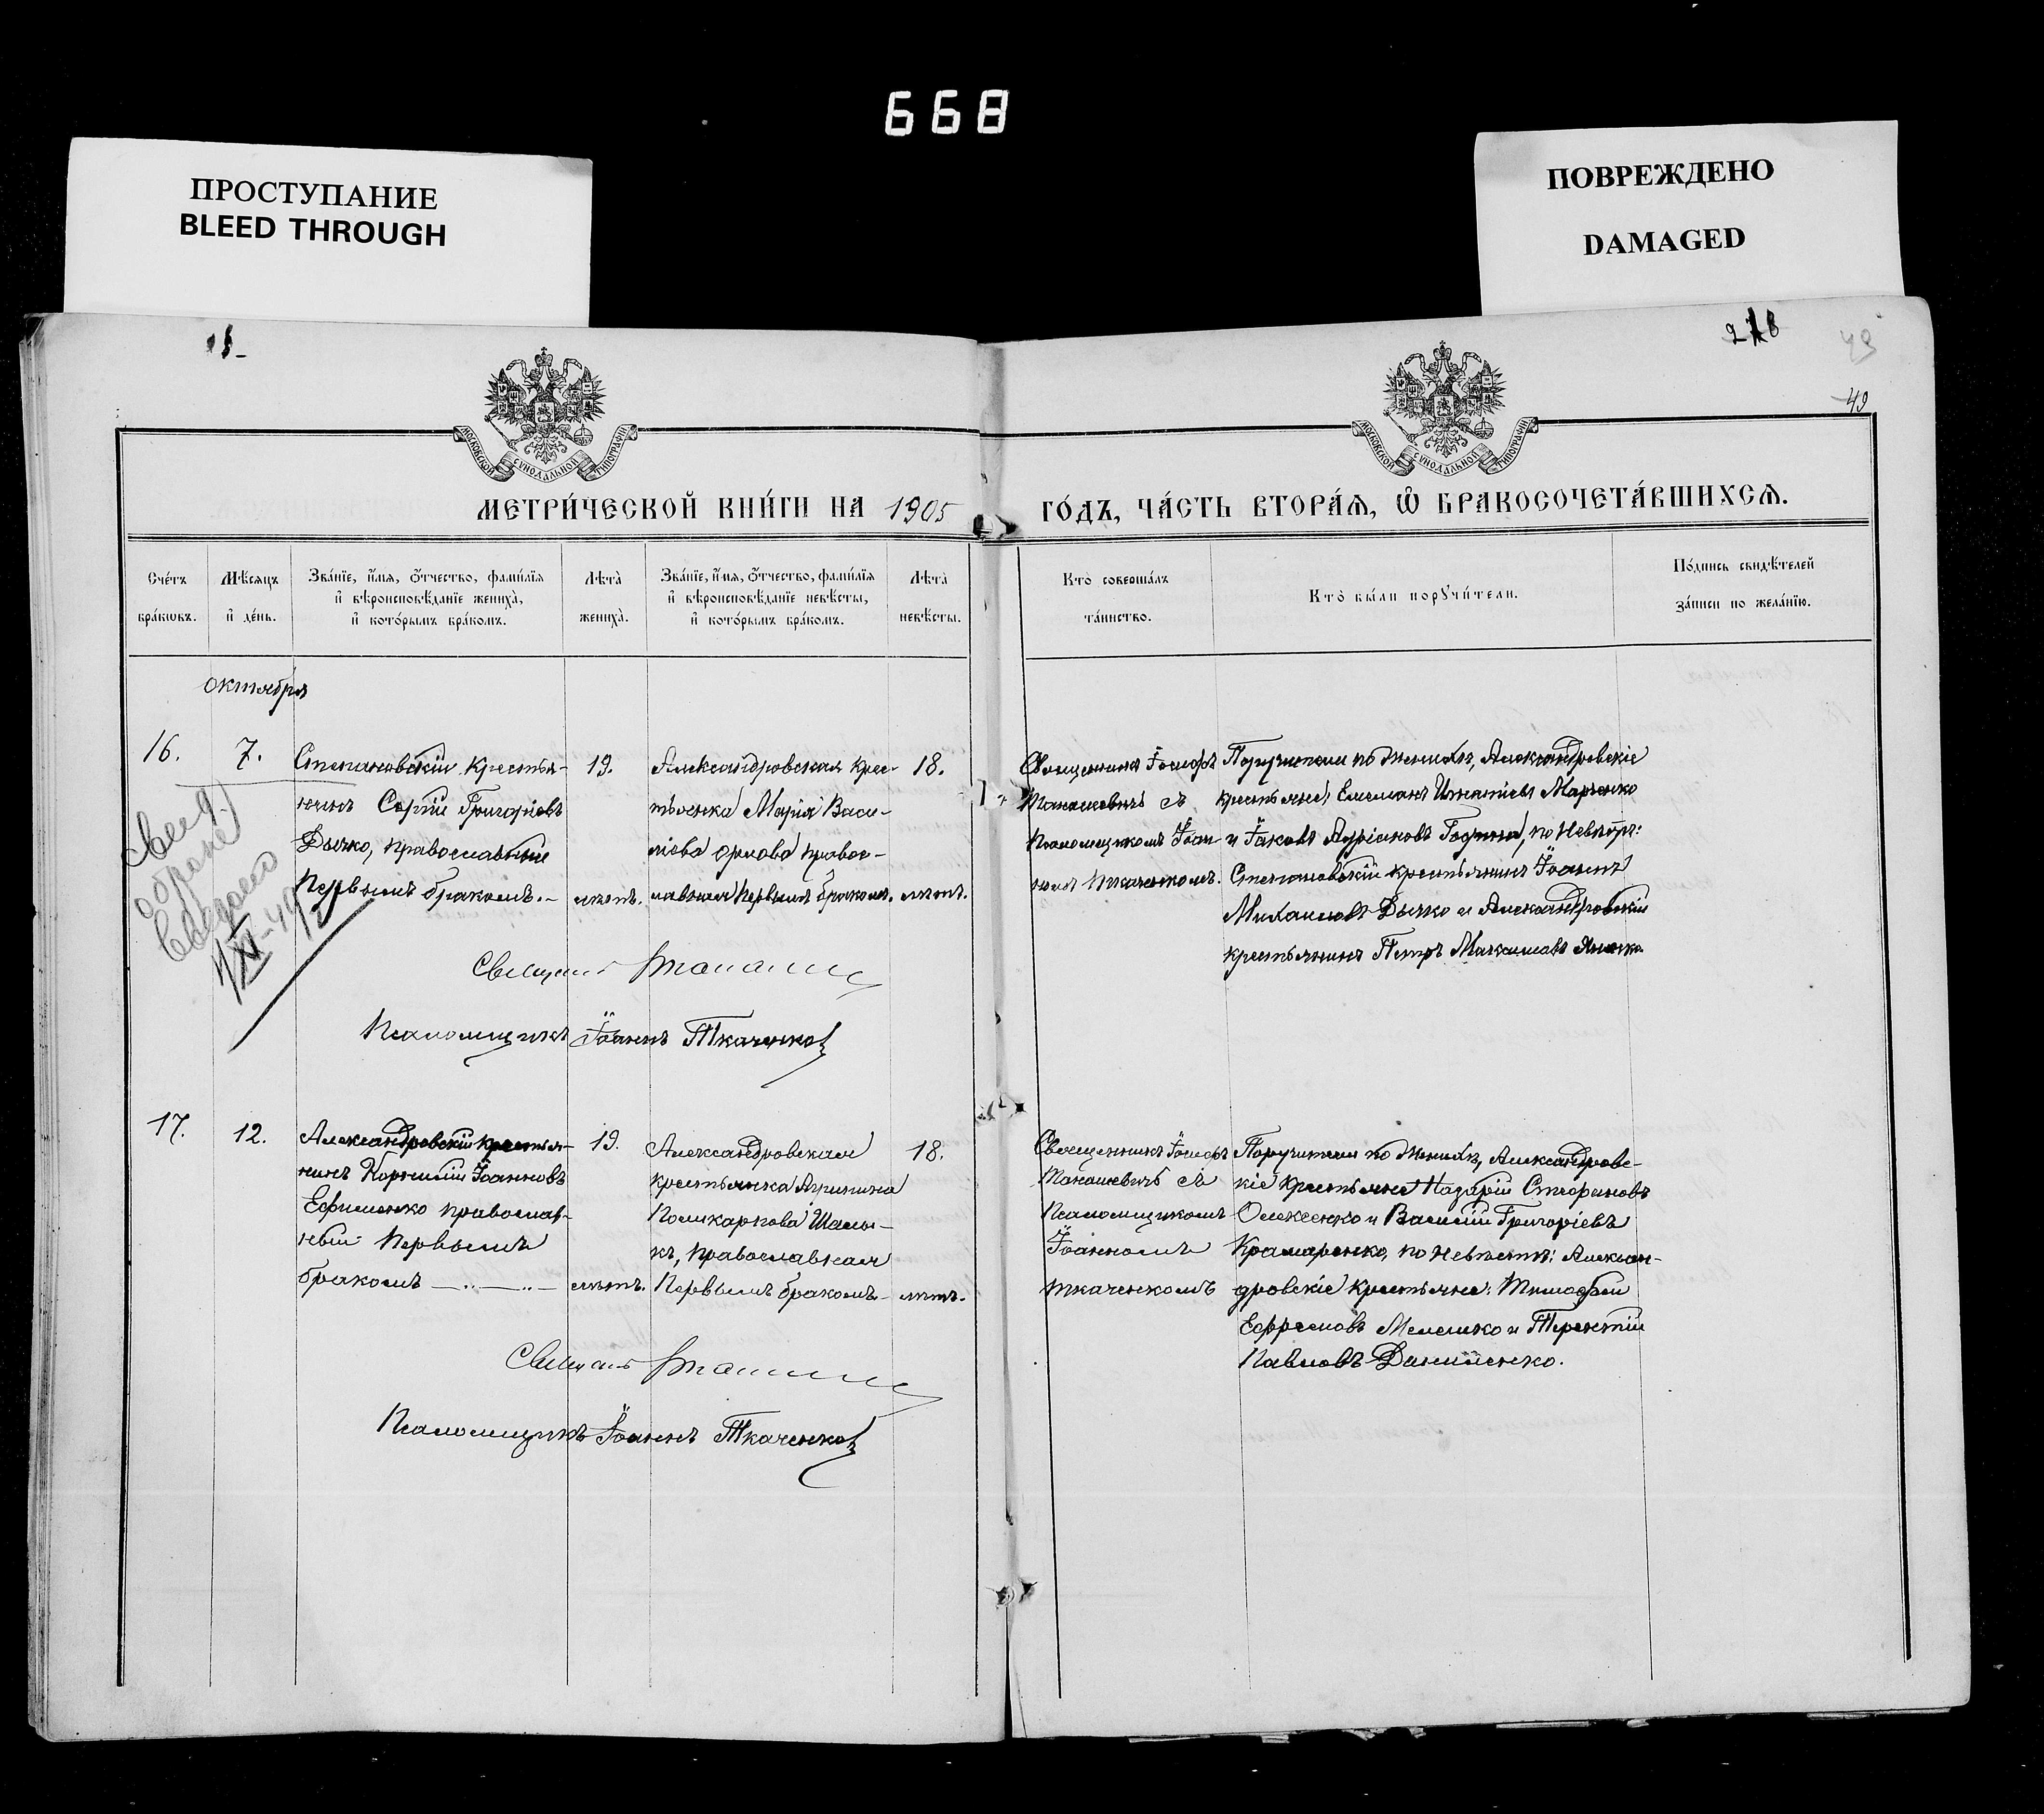 668
ПРОСТУПАНИЕ
BLEED THROUGH
ПОВРЕЖДЕНО
DAMAGED
49
МОСКОВСКОЙ СѴНОДАЛЬНОЙ ТИПОГРАФІИ
МОСКОВСКОЙ СѴНОДАЛЬНОЙ ТИПОГРАФІИ
МЕТРИ́ЧЕСКОЙ КНИ́ГИ НА 1905
ГО́ДЪ, ЧА́СТЬ ВТОРА́Ѧ, Ѽ БРАКОСОЧЕТА́ВШИХСѦ.
Сче́тъ
бра́кωвъ.
Мѣ́сяцъ
и҆ де́нь.
Зва́нїе, и҆́мя, ѻ҆́тчество, фами́лїя
и҆ вѣроисповѣ́данїе жениха̀,
и҆ кото́рымъ бра́комъ.
Лѣ́та̀
жениха̀.
Зва́нїе, и҆́мя, ѻ҆́тчество, фами́лїя
и҆ вѣроисповѣ́данїе невѣ́сты,
и҆ кото́рымъ бра́комъ.
Лѣ́та̀
невѣ́сты.
Кто̀ соверша́лъ
та́инство.
Кто̀ бы́ли порꙋчи́тели.
По́дпись свидѣ́телей
за́писи по жела́нїю.
Октября
16.
7.
Степановскій крестья-
нинъ Сергій Григорієвъ
Дычко, православный
первымъ бракомъ.-
19.
лѣтъ.
Александровская крес-
тьянка Марія Васи-
ліева Орлова правос-
лавная первымъ бракомъ.
18.
лѣтъ.
Священникъ Іосифъ
съ
Псаломщикомъ Іоан-
номъ Ткаченкомъ.
Поручители по женихѣ, Александровскіе
крестьяне, Емеліанъ Игнатіевъ Марченко
и Іаковъ по невѣстѣ:
Степановскій крестьянинъ Іоаннъ
Михаиловъ Дычко и Александровскій
крестьянинъ Петръ
Священ
Псаломщикъ Іоаннъ Ткаченко
17.
12.
Александровскій крестья-
нинъ Корнилій Іоанновъ
Ефименко православ-
ный первымъ
бракомъ
19.
лѣтъ.
Александровская
крестьянка Агрипина
Поликарпова
православная
первымъ бракомъ.-
18.
лѣтъ.
Священникъ Іосифъ
съ
Псаломщикомъ
Іоанномъ
Ткаченкомъ
Поручители по женихѣ, Александровс-
кіе крестьяне Назарій Стефановъ
Олексенко и Василій Григоріевъ
Крамаренко, по невѣстѣ: Алексан-
дровскіе крестьяне: Тимофей
Ефремовъ Мелешко и Терентій
Павловъ Даниленко.
Священ
Псаломщикъ Іоаннъ Ткаченко